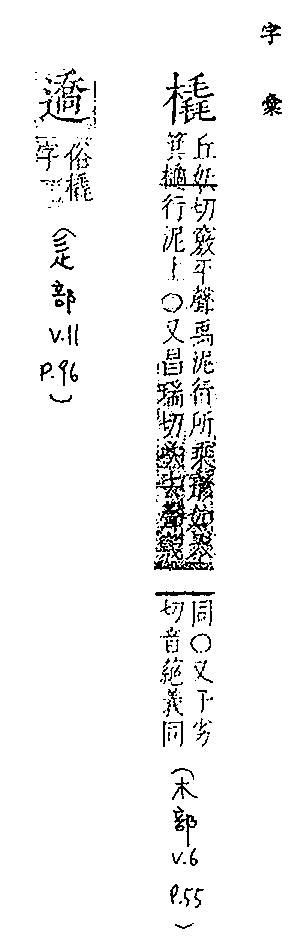 字彙
橇
丘妖切竅平聲禹泥行所乘
箕擿行泥上○又昌瑞切
同○又下劣
切音絕義同
(木部 V.6 P.55)
俗橇
字
(辵部 V.11 P.96)